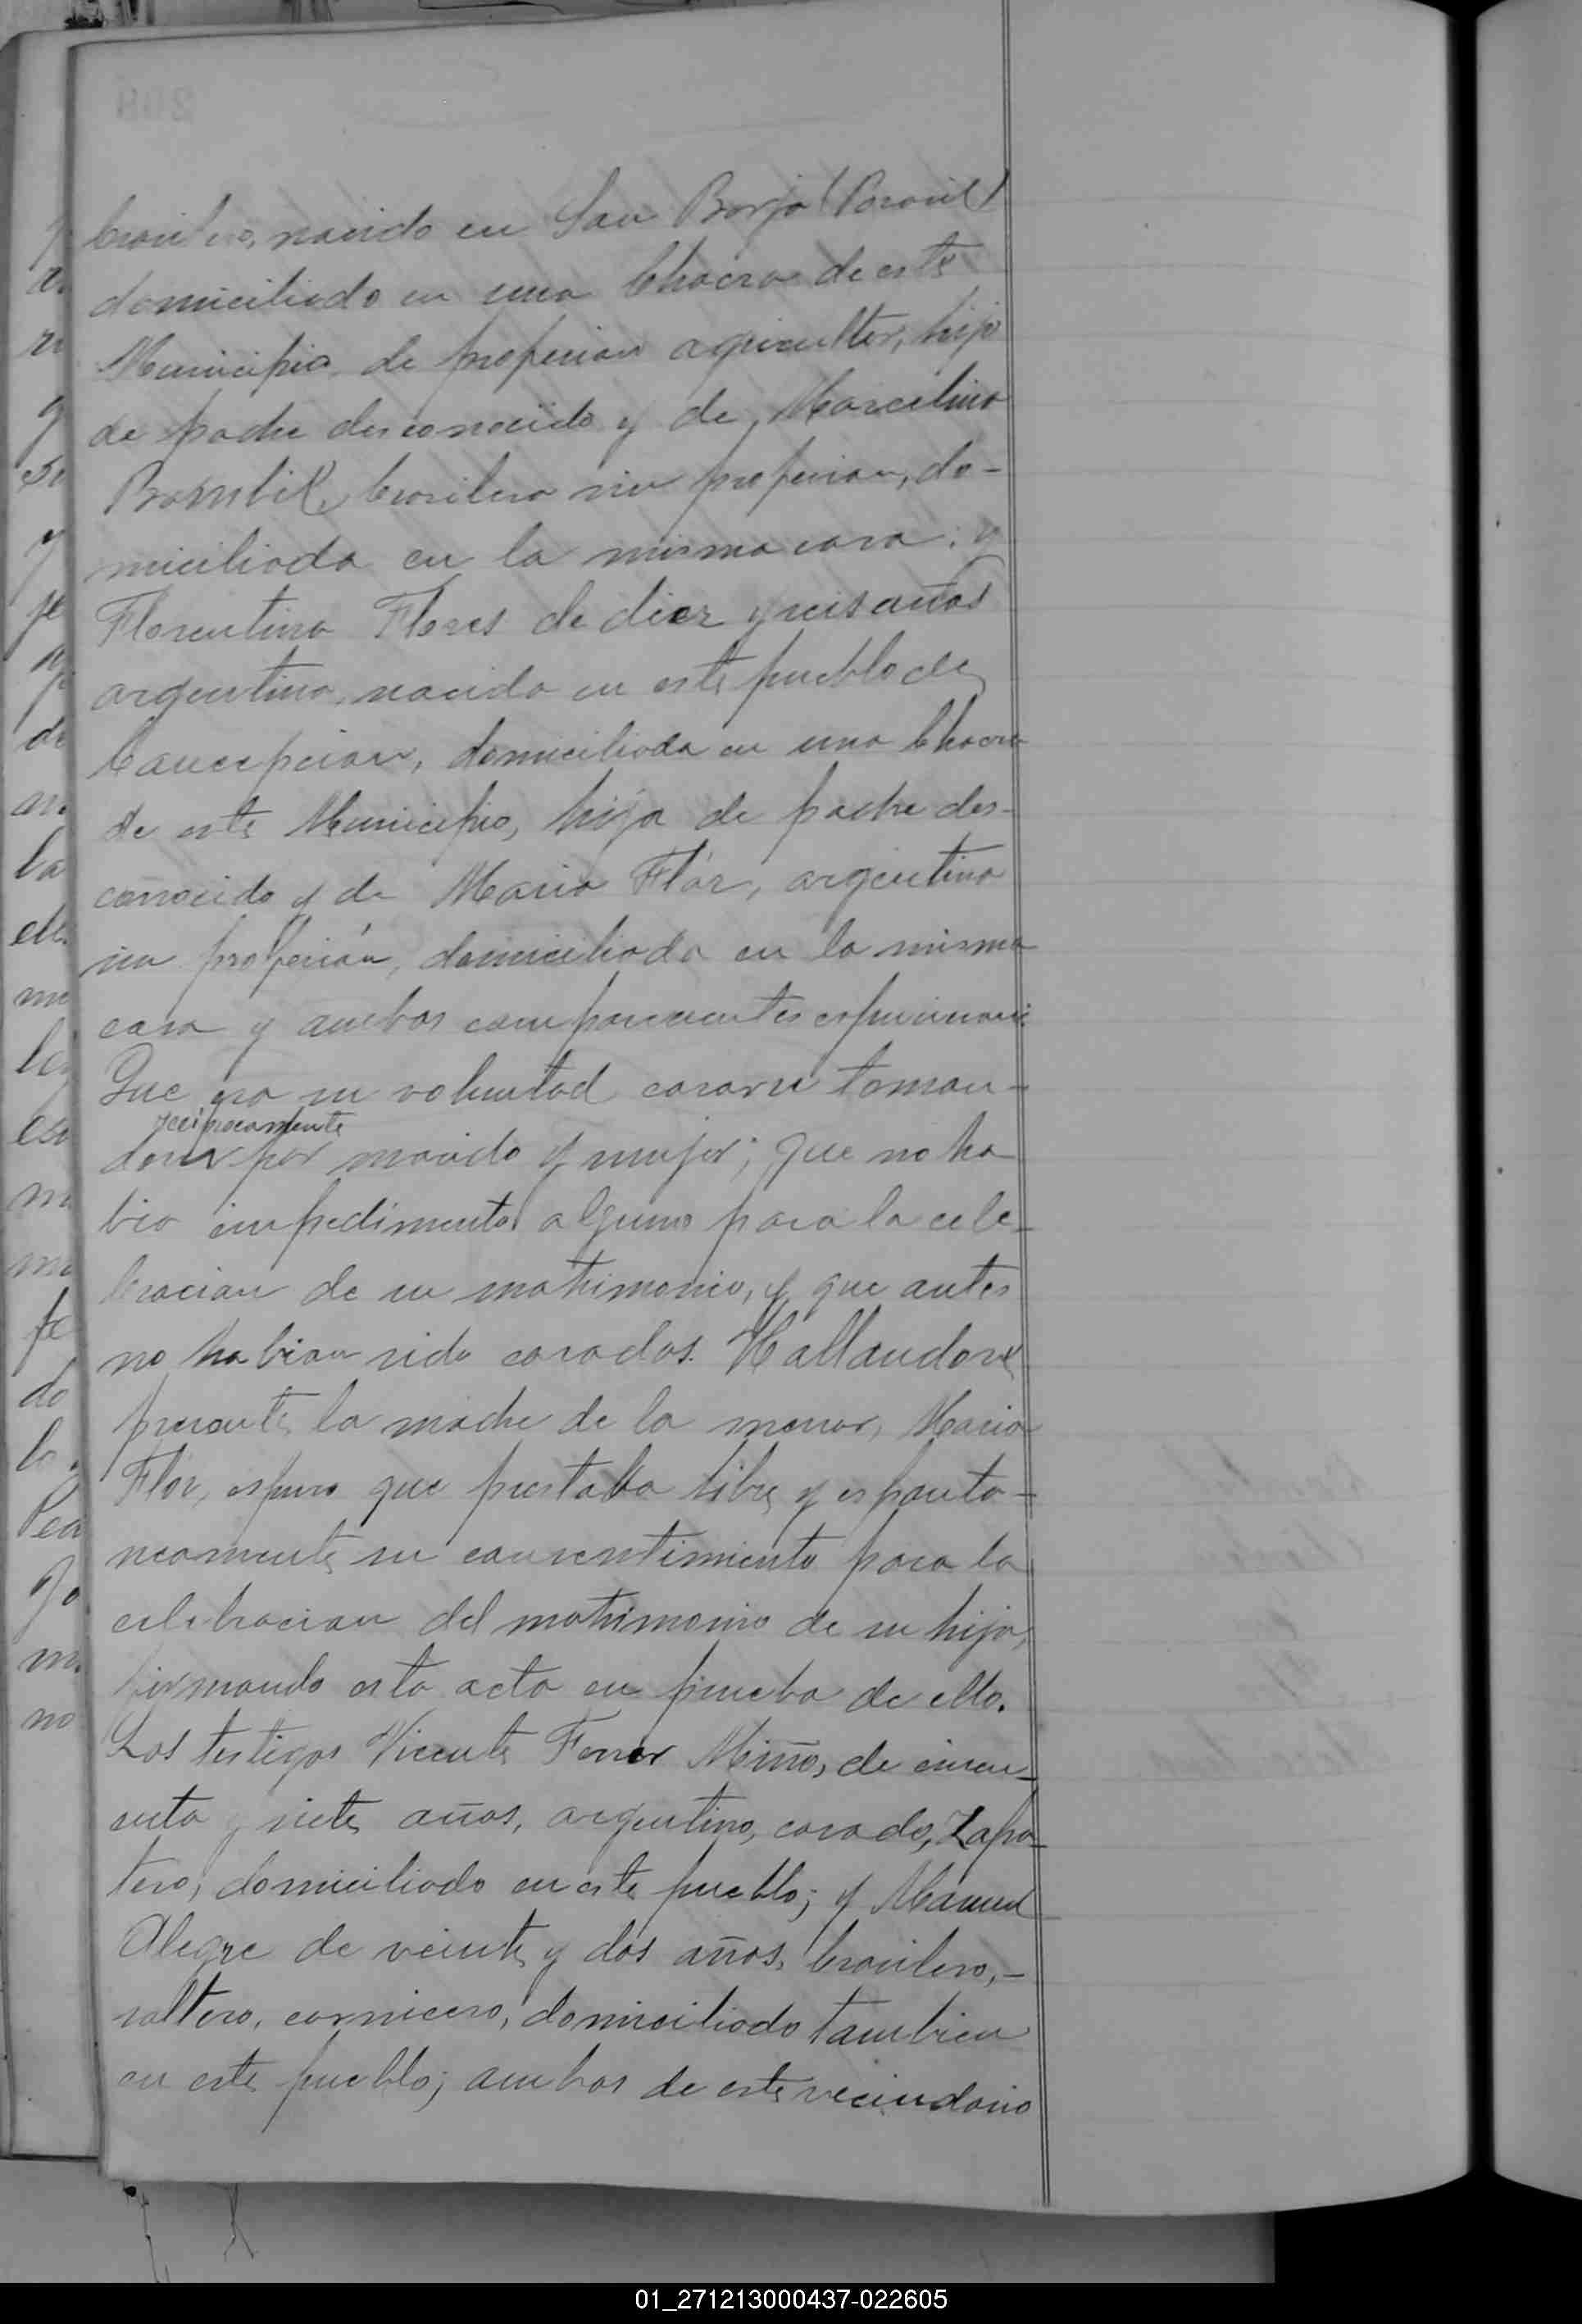 brasilero, nacido en San Borja (Brasil)
domiciliado en una Chacra de este
Municipio de profesion agricultor, hijo
de padre desconocido y de Marcelina
Brasilera sin profesion, do-
miciliada en la misma casa; y
Florentina Flores de diez y seis años
argentina, nacida en este pueblo de
Concepcion, domiciliada en una Chacra
de este Municipio, hija de padre des-
conocido y de Maria Flór, argentina
sin profesión, domiciliada en la misma
casa y ambos comparecientes espusieron:
Que era su voluntad casarse toman-
reciprocamente
dose por marido y mujer; que no ha
bia impedimento alguno para la cele-
bracion de su matrimonio, y que antes
no habian sido casados. Hallandose
presente la madre de la menor, Maria
Flór, espuso que prestaba libre y esponta-
neamente su consentimiento para la
celebracion del matrimonio de su hija,
firmando esta acta en prueba de ello.
Los testigos Vicente Ferrer Miño, de cincu-
enta y siete años, argentino, casado, Zapa-
tero, domiciliado en este pueblo; y Manuel
Alegre de veinte y dos años, brasilero,-
soltero, carnicero, domiciliado tambien
en este pueblo; ambos de este vecindario
01_271213000437-022605